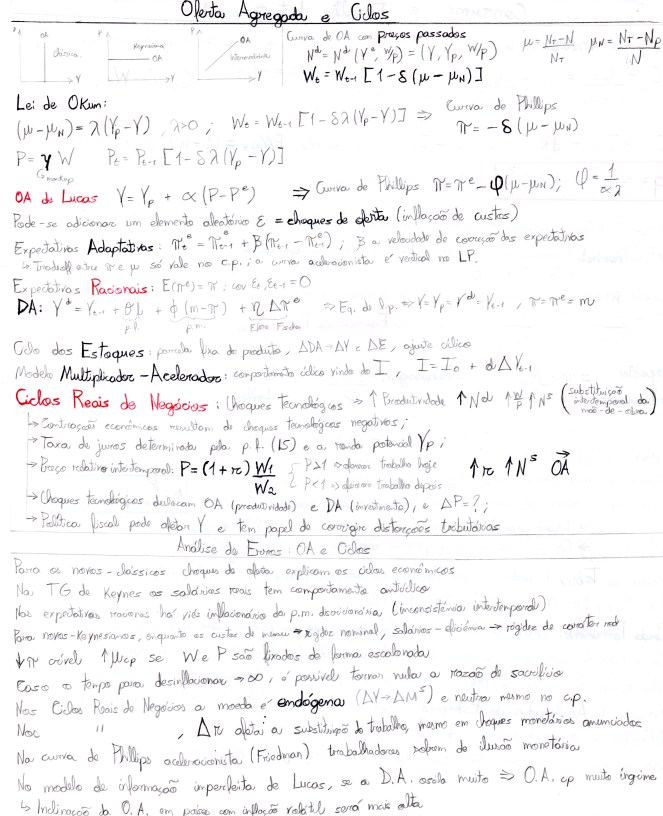 Oferta Agregada e Ciclos
P OA Clássica Y
P Keynesiana OA Y
P OA Intermediária Y
Curva de OA com preços passados
N^d = N^d (Y^e, W/P) = (Y, Y_P, W/P)
W_t = W_{t-1} [1 - δ (μ - μ_N)]
μ = (N_T - N)/N_T μ_N = (N_T - N_P)/N
Lei de Okun:
(μ - μ_N) = λ (Y_P - Y), λ>0; W_t = W_{t-1} [1 - δλ (Y_P - Y)] ⇒ Curva de Phillips
π = -δ (μ - μ_N)
P = γ W P_t = P_{t-1} [1 - δλ (Y_P - Y)]
↳ markup
OA de Lucas Y = Y_P + α (P - P^e) ⇒ Curva de Phillips π = π^e - φ (μ - μ_N); φ = 1/(αλ)
Pode-se adicionar um elemento aleatório ε = choques de oferta (inflação de custos)
Expectativas Adaptativas: π_t^e = π_{t-1}^e + β (π_{t-1} - π_{t-1}^e); β a velocidade de correção das expectativas
↳ Tradeoff entre π e μ só vale no c.p.; a curva aceleracionista é vertical no LP.
Expectativas Racionais: E(π^e) = π; cov ε_t, ε_{t-1} = 0
DA: Y^d = Y_{t-1} + θ f + φ (m - π) + η Δπ^e ⇒ Eq. de l.p. ⇒ Y = Y_P = Y^d = Y_{t-1}, π = π^e = m
p.f. p.m. Efeito Fisher
Ciclo dos Estoques: parcela fixa do produto, ΔDA → ΔY e ΔE, ajuste cíclico
Modelo Multiplicador-Acelerador: comportamento cíclico vindo do I, I = I_0 + d ΔY_{t-1}
Ciclos Reais de Negócios: Choques tecnológicos ⇒ ↑ Produtividade ↑ N^d ↑ W/P ↑ N^s (substituição intertemporal da mão-de-obra)
↳ Contrações econômicas resultam de choques tecnológicos negativos;
→ Taxa de juros determinada pela p.f. (IS) e a renda potencial Y_P;
→ Preço relativo intertemporal: P = (1 + r) W_1/W_2 { P>1 → oferecer trabalho hoje ↑ r ↑ N^s OA→
P<1 → oferecer trabalho depois
→ Choques tecnológicos deslocam OA (produtividade) e DA (investimento), e ΔP = ?;
→ Política fiscal pode afetar Y e tem papel de corrigir distorções tributárias
Análise de Erros: OA e Ciclos
Para os novos-clássicos choques de oferta explicam os ciclos econômicos
Na TG de Keynes os salários reais tem comportamento anticíclico
Nas expectativas racionais há viés inflacionário da p.m. discricionária (inconsistência intertemporal)
Para novos-Keynesianos, enquanto os custos de menu → rigidez nominal, salários-eficiência → rigidez de caráter real
↓ π crível ↑ μ_cp se W e P são fixados de forma escalonada
Caso o tempo para desinflacionar → ∞, é possível tornar nula a razão de sacrifício
Nos Ciclos Reais de Negócios a moeda é endógena (ΔY → ΔM^s) e neutra mesmo no c.p.
Nos " , Δr afeta a substituição do trabalho, mesmo em choques monetários anunciados
Na curva de Phillips aceleracionista (Friedman) trabalhadores sofrem de ilusão monetária
No modelo de informação imperfeita de Lucas, se a D.A. oscila muito ⇒ O.A. cp muito íngrime
↳ Inclinação da O.A. em países com inflação volátil será mais alta